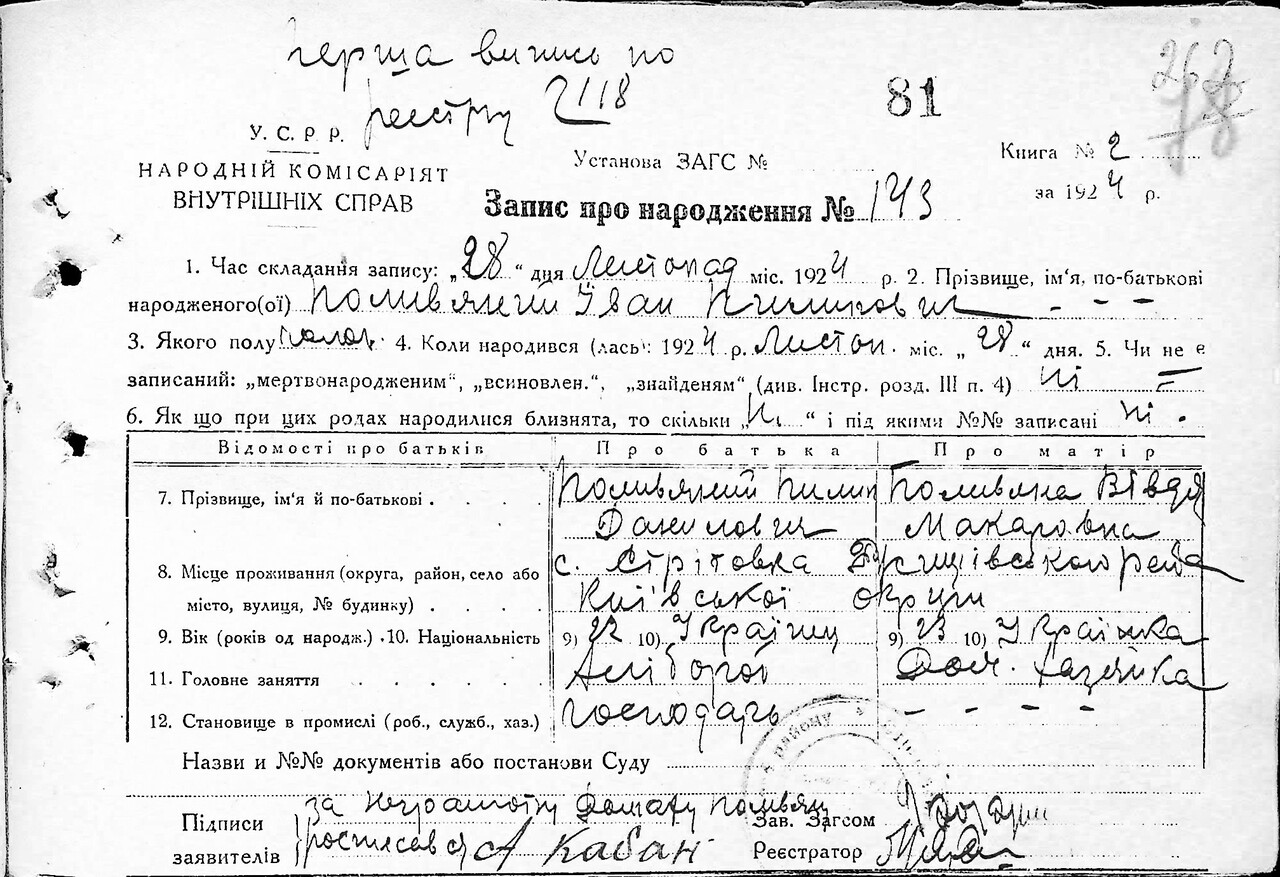 перша випись по
реєстру 2118
81
У. С. Р. Р.
Установа ЗАГС №
Книга № 2
НАРОДНІЙ КОМІСАРІЯТ
за 1924 р.
ВНУТРІШНІХ СПРАВ
Запис про народження № 143
1. Час складання запису: „28" дня Листопад міс. 1924 р. 2. Прізвище, ім'я, по-батькові
народженого(ої) Поливяний Іван Пилипович - - -
3. Якого полу 4. Коли народився (лась): 1924 р. Листоп. міс. „28" дня. 5. Чи не є
записаний: „мертвонародженим", „всиновлен.", „знайденям" (див. Інстр. розд. III п. 4) ні
6. Як що при цих родах народилися близнята, то скільки „Ні" і під якими №№ записані ні.
Відомості про батьків Про батька Про матір
7. Прізвище, ім'я й по-батькові . . . . Поливяний Пилип Поливяна Вівдя
Данилович Макаровна
8. Місце проживання (округа, район, село або с. Стрітовка района
місто, вулиця, № будинку) . . . . Київської округи
9. Вік (років од народж.) 10. Національність 9) 22 10) Українец 9) 23 10) Українка
11. Головне заняття . . . . . . Хлібороб Дом. хазяйка
12. Становище в промислі (роб., служб., хаз.) господарь - - - -
Назви и №№ документів або постанови Суду
за неграмотну
Підписи Зав. Загсом
заявителів росписався А Кабан Реєстратор